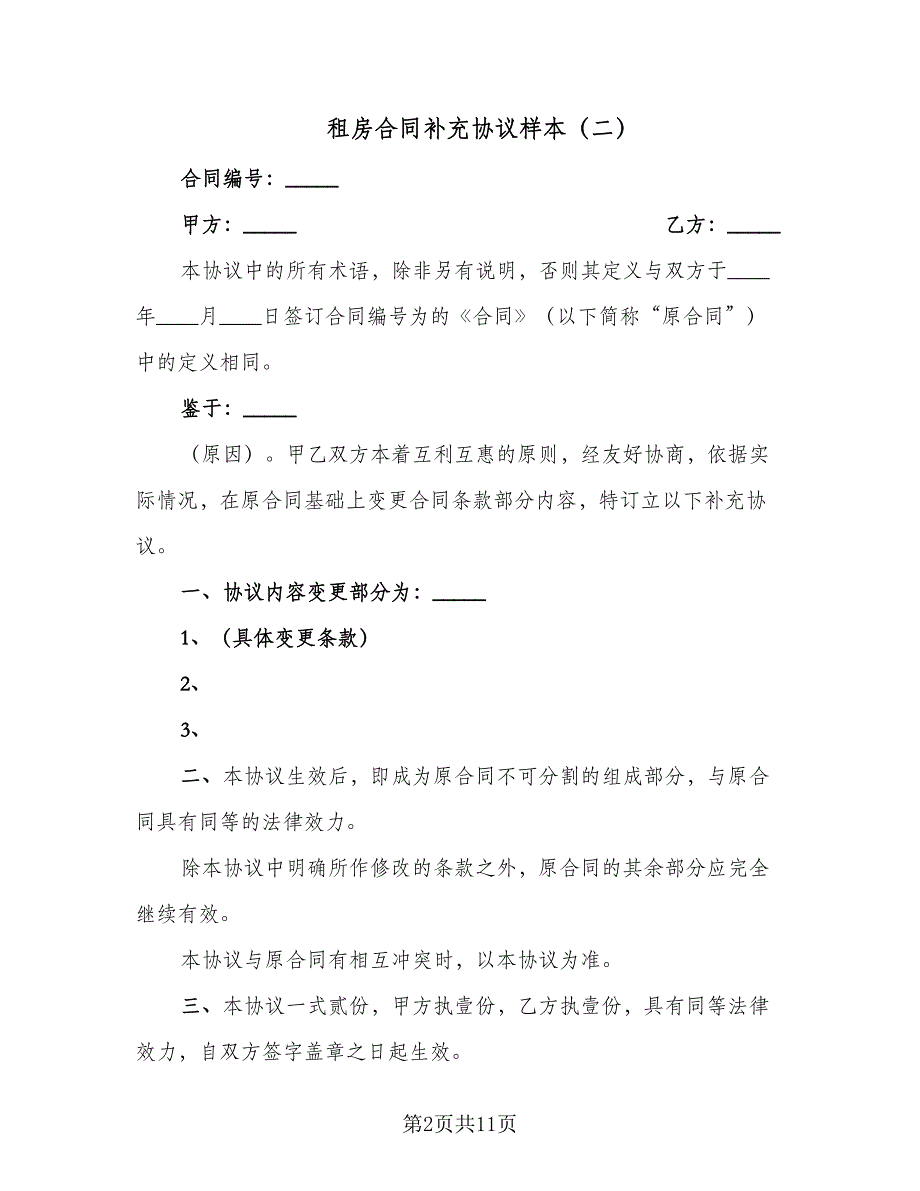 租房合同补充协议样本（二）
合同编号：_____
甲方：_____ 乙方：_____
本协议中的所有术语，除非另有说明，否则其定义与双方于____
年____月____日签订合同编号为的《合同》（以下简称“原合同”）
中的定义相同。
鉴于：_____
（原因）。甲乙双方本着互利互惠的原则，经友好协商，依据实
际情况，在原合同基础上变更合同条款部分内容，特订立以下补充协
议。
一、协议内容变更部分为：_____
1、（具体变更条款）
2、
3、
二、本协议生效后，即成为原合同不可分割的组成部分，与原合
同具有同等的法律效力。
除本协议中明确所作修改的条款之外，原合同的其余部分应完全
继续有效。
本协议与原合同有相互冲突时，以本协议为准。
三、本协议一式贰份，甲方执壹份，乙方执壹份，具有同等法律
效力，自双方签字盖章之日起生效。
第2页共11页